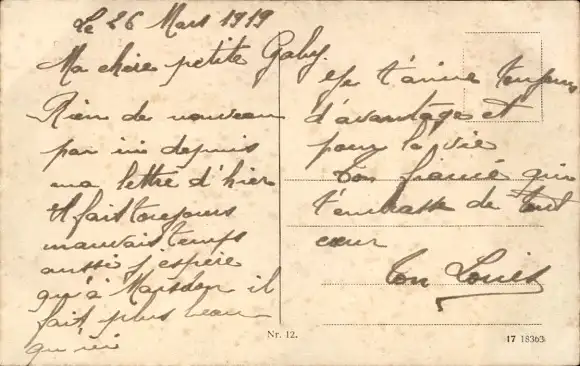 Le 26 Mars 1919
Ma chère petite Gaby.
Rien de nouveau
par ici depuis
ma lettre d'hier
Il fait toujours
mauvais temps
aussi j'espère
qu'à il
fait plus beau
qu'ici
Je t'aime toujours
d'avantage et
pour la vie
Ton fiancé qui
t'embrasse de tout
cœur
Ton Louis
Nr. 12.
17 18363